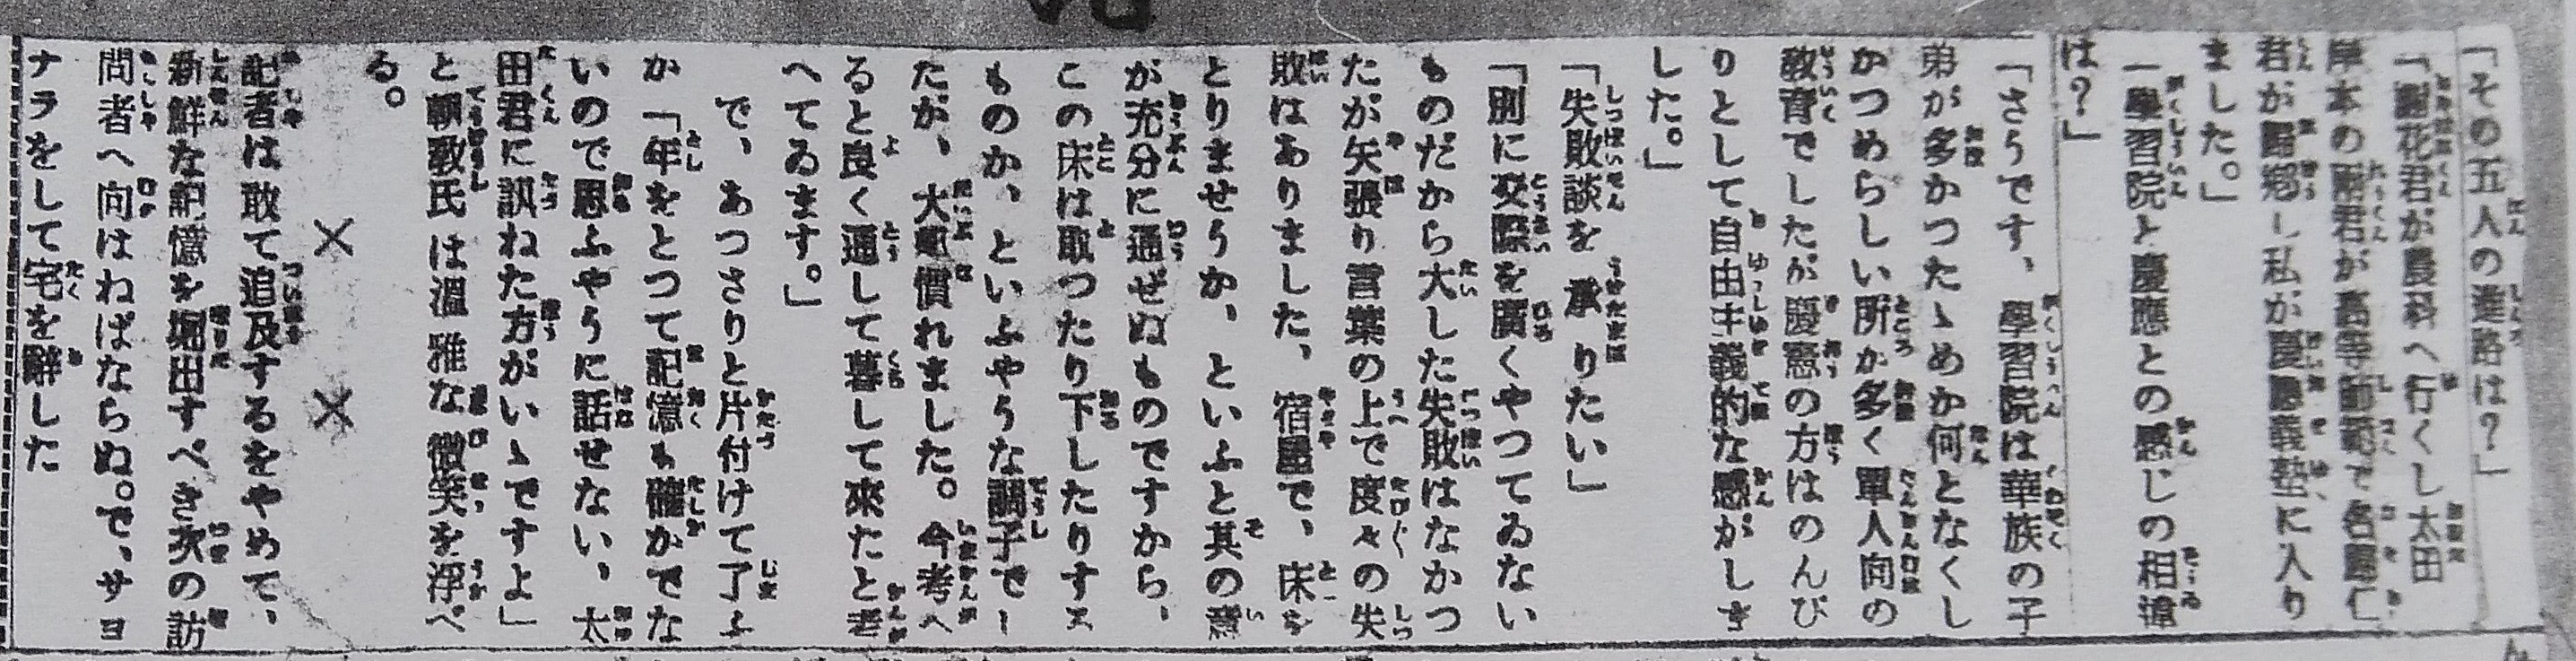 「その五人の進路は？」
「謝花君が農科へ行くし太田
岸本の兩君が高等師範で名願仁
君が歸鄕し私が慶應義塾に入り
ました。」
「學習院と慶應との感じの相違
は？」
「さうです、學習院は華族の子
弟が多かつたゝめか何となくし
かつめらしい所が多く軍人向の
教育でしたが慶應の方はのんび
りとして自由主義的な感がしま
した。」
「失敗談を承りたい」
「別に交際を廣くやつてゐない
ものだから大した失敗はなかつ
たが矢張り言葉の上で度々の失
敗はありました、宿屋で、床を
とりませうか、といふと其の意
が充分に通ぜぬものですから、
この床は取つたり下したりする
ものか、といふやうな調子でし
たが、大艱慣れました。今考へ
ると良く通して暮して來たと考
へてゐます。」
で、あつさりと片付けて了ふ
か「年をとつて記憶も確かでな
いので思ふやうに話せない、太
田君に訊ねた方がいゝですよ」
と朝敎氏は溫雅な微笑を浮べ
る。
× ×
記者は敢て追及するをやめて、
新鮮な記憶を堀出すべき次の訪
問者へ向はねばならぬ。で、サヨ
ナラをして宅を辭した